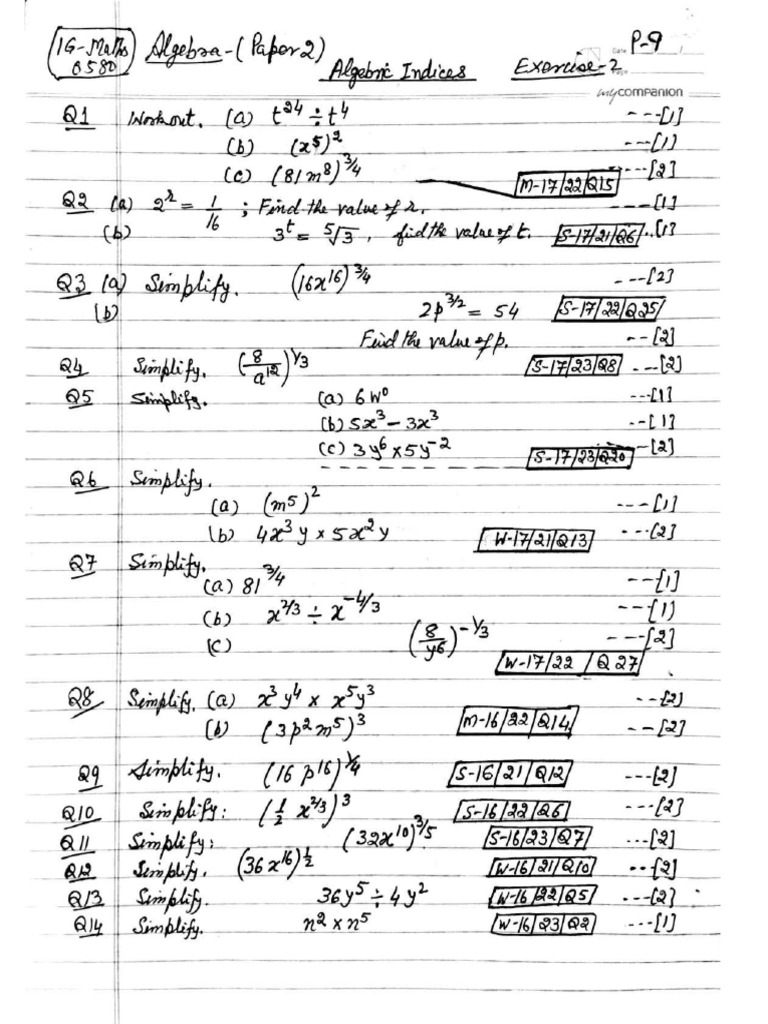 IG-Maths 0580 Algebra-(Paper 2) P-9
Algebraic Indices Exercise-2
Date
mycompanion
Q1 Workout. (a) t²⁴ ÷ t⁴ ---[1]
(b) (x⁵)² ---[1]
(c) (81m⁸)^3/4 M-17/22/Q15 ---[2]
Q2 (a) 2^r = 1/16 ; Find the value of r. ---[1]
(b) 3^t = ⁵√3, find the value of t. S-17/21/Q6 --[1]
Q3 (a) Simplify. (16x¹⁶)^3/4 ---[2]
(b) 2p^3/2 = 54 S-17/22/Q25
Find the value of p. --[2]
Q4 Simplify. (8/a¹²)^1/3 S-17/23/Q8 ---[2]
Q5 Simplify. (a) 6w⁰ ---[1]
(b) 5x³-3x³ --[1]
(c) 3y⁶ × 5y⁻² S-17/23/Q20 --[2]
Q6 Simplify.
(a) (m5)² ---[1]
(b) 4x³y × 5x²y W-17/21/Q13 ---[2]
Q7 Simplify.
(a) 81^3/4 --[1]
(b) x^2/3 ÷ x^-4/3 --[1]
(c) (8/y⁶)^-1/3 ---[2]
W-17/22/Q27
Q8 Simplify. (a) x³y⁴ × x⁵y³ --[2]
(b) (3p²m⁵)³ M-16/22/Q14 --[2]
Q9 Simplify. (16p¹⁶)^1/4 S-16/21/Q12 ---[2]
Q10 Simplify: (1/2 x^2/3)³ S-16/22/Q6 ---[2]
Q11 Simplify: (32x¹⁰)^3/5 S-16/23/Q7 ---[2]
Q12 Simplify. (36x¹⁶)^1/2 W-16/21/Q10 --[2]
Q13 Simplify. 36y⁵ ÷ 4y² W-16/22/Q5 ---[2]
Q14 Simplify. n² × n⁵ W-16/23/Q2 ---[1]